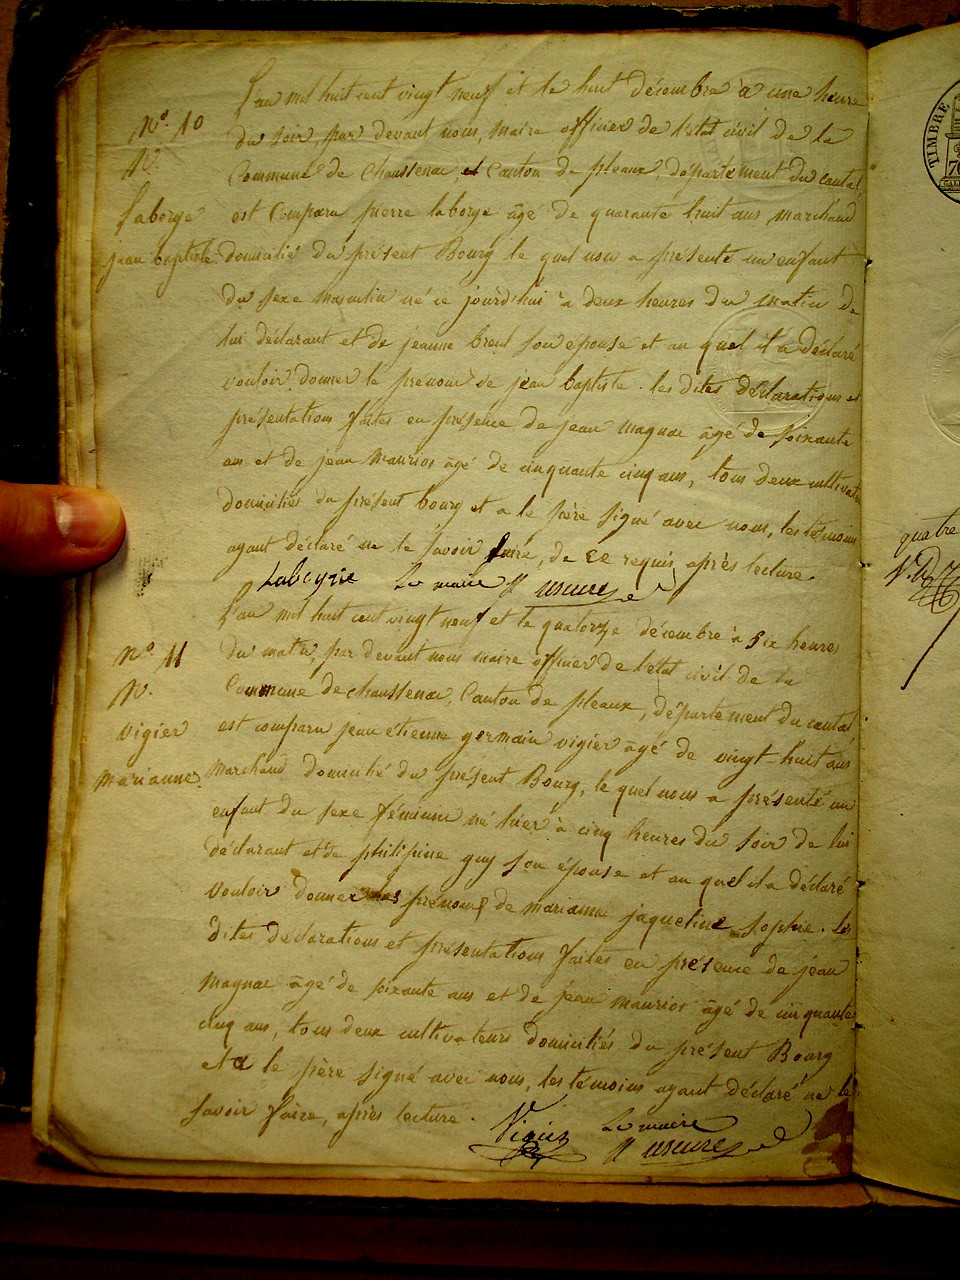 L'an mil huit cent vingt neuf et le huit décembre à une heure
N.o 10
du soir, par devant nous, maire officier de l'état civil de la
N.
Commune de Chaussenac, et Canton de pleaux, département du cantal
Laborge
est comparu pierre laborge âgé de quarante huit ans marchand
jean baptiste
domicilié du présent Bourg le quel nous a présenté un enfant
du sexe masculin né ce jourd'hui à deux heures du matin de
lui déclarant et de jeanne breul son épouse et au quel il a déclaré
vouloir donner le prénom de jean baptiste. les dites déclarations et
présentations faites en présence de jean magnac âgé de soixante
ans et de jean maurios âgé de cinquante cinq ans, tous deux cultivate
domiciliés du présent bourg et a le père signé avec nous, les témoins
ayant déclaré ne le savoir faire, de ce requis, après lecture.
Labeyrie Le maire
L'an mil huit cent vingt neuf et le quatorze décembre à six heures
N.o 11
du matin, par devant nous maire officier de l'état civil de la
N.
Commune de chaussenac, Canton de pleaux, département du cantal
vigier
est comparu jean étienne germain vigier âgé de vingt huit ans
marianne
marchand domicilié du présent Bourg, le quel nous a présenté un
enfant du sexe féminin né hier à cinq heures du soir de lui
déclarant et de philipine guy son épouse et au quel il a déclaré
vouloir donner les prénoms de marianne jaqueline sophie. les
dites déclarations et présentations faites en présence de jean
magnac âgé de soixante ans et de jean maurios âgé de cinquante
cinq ans, tous deux cultivateurs domiciliés du présent Bourg
et a le père signé avec nous, les témoins ayant déclaré ne le
savoir faire, après lecture.
Vigier Le maire
TIMBRE
quatre